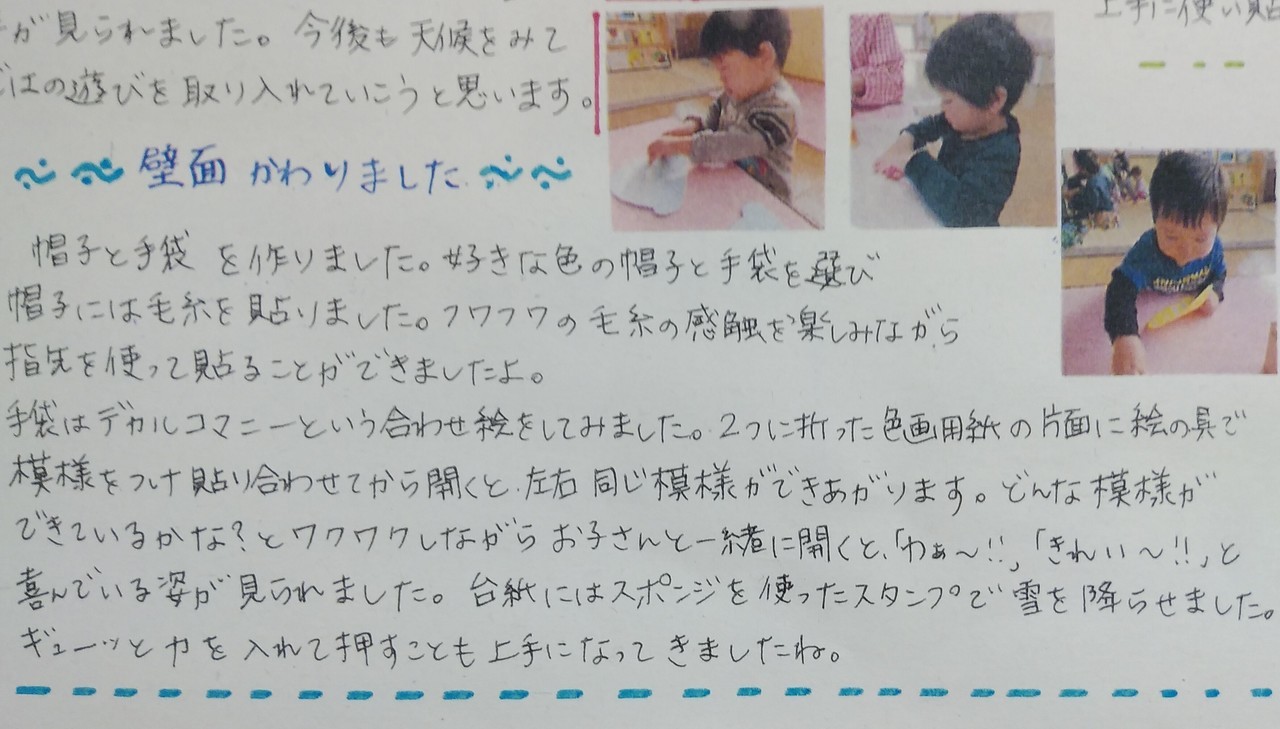 が見られました。今後も天候をみて
はの遊びを取り入れていこうと思います。
上手に使い貼
壁面かわりました
帽子と手袋を作りました。好きな色の帽子と手袋を選び
帽子には毛糸を貼りました。フワフワの毛糸の感触を楽しみながら
指先を使って貼ることができましたよ。
手袋はデカルコマニーという合わせ絵をしてみました。2つに折った色画用紙の片面に絵の具で
模様をつけ貼り合わせてから開くと、左右同じ模様ができあがります。どんな模様が
できているかな?とワクワクしながらお子さんと一緒に開くと、「わぁ〜!!」「きれい〜!!」と
喜んでいる姿が見られました。台紙にはスポンジを使ったスタンプで雪を降らせました。
ギューッと力を入れて押すことも上手になってきましたね。